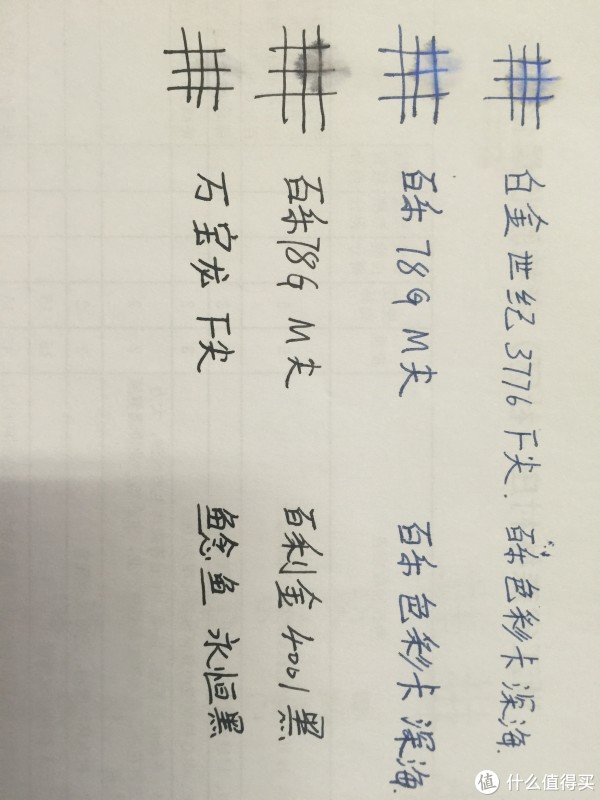 白金世纪3776 F尖. 百乐色彩卡深海.
百乐78G M尖 百乐色彩卡深海.
百乐78G M尖 百利金4001黑
万宝龙 F尖 鲶鱼 永恒黑
值 什么值得买